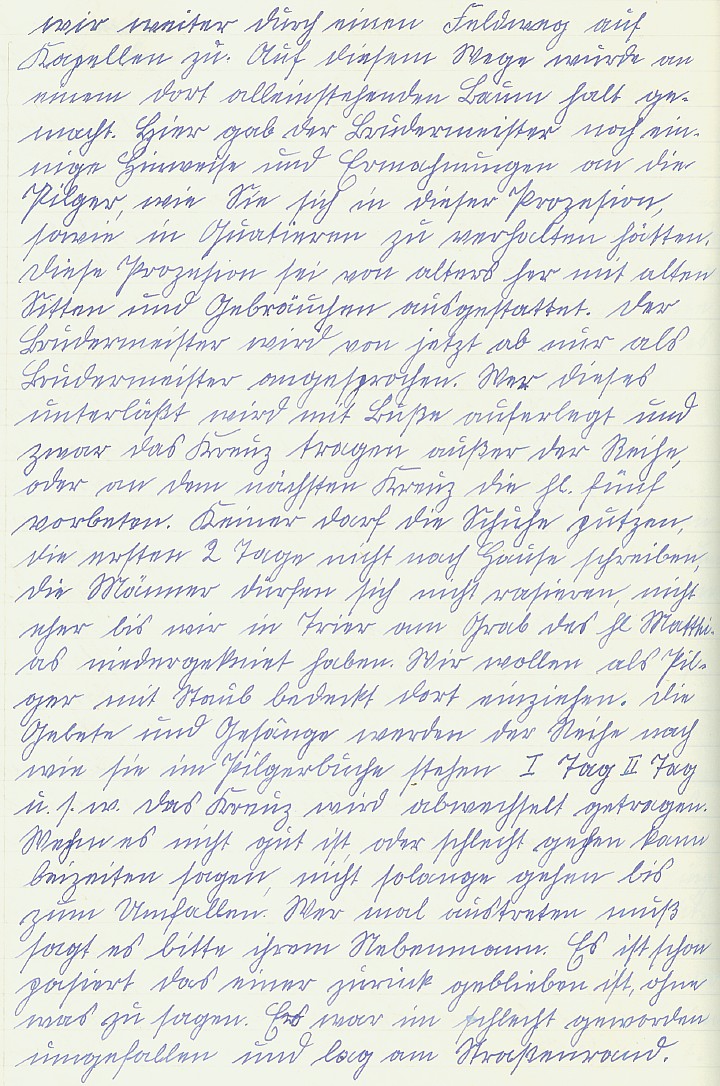 wir weiter durch einen Feldweg auf
Kapellen zu. Auf diesem Wege wurde an
einem dort alleinstehenden Baum halt ge-
macht. Hier gab der Brudermeister noch ein-
nige Hinweise und Ermahnungen an die
Pilger, wie Sie sich in dieser Prozesion,
sowie in Quatieren zu verhalten hätten.
Diese Prozesion sei von alters her mit alten
Sitten und Gebräuchen ausgestattet. Der
Brudermeister wird von jetzt ab nur als
Brudermeister angesprochen. Wer dieses
unterläßt wird mit Buße auferlegt und
zwar das Kreuz tragen außer der Reihe,
oder an dem nächsten Kreuz die hl. fünf
vorbeten. Keiner darf die Schuhe putzen,
die ersten 2 Tage nicht nach Hause schreiben,
die Männer dürfen sich nicht rasieren, nicht
eher bis wir in Trier am Grab des hl Matthi-
as niedergekniet haben. Wir wollen als Pil-
ger mit Staub bedeckt dort einziehen. Die
Gebete und Gesänge werden der Reihe nach
wie sie im Pilgerbuche stehen I Tag II Tag
u. s. w. Das Kreuz wird abwechselt getragen.
Wehm es nicht gut ist, oder schlecht gehen kann
beizeiten sagen, nicht solange gehen bis
zum Umfallen. Wer mal austreten muß
sagt es bitte ihrem Nebenmann. Es ist schon
pasiert das einer zurück geblieben ist, ohne
was zu sagen. Es war im schlecht geworden
umgefallen und lag am Straßenrand.